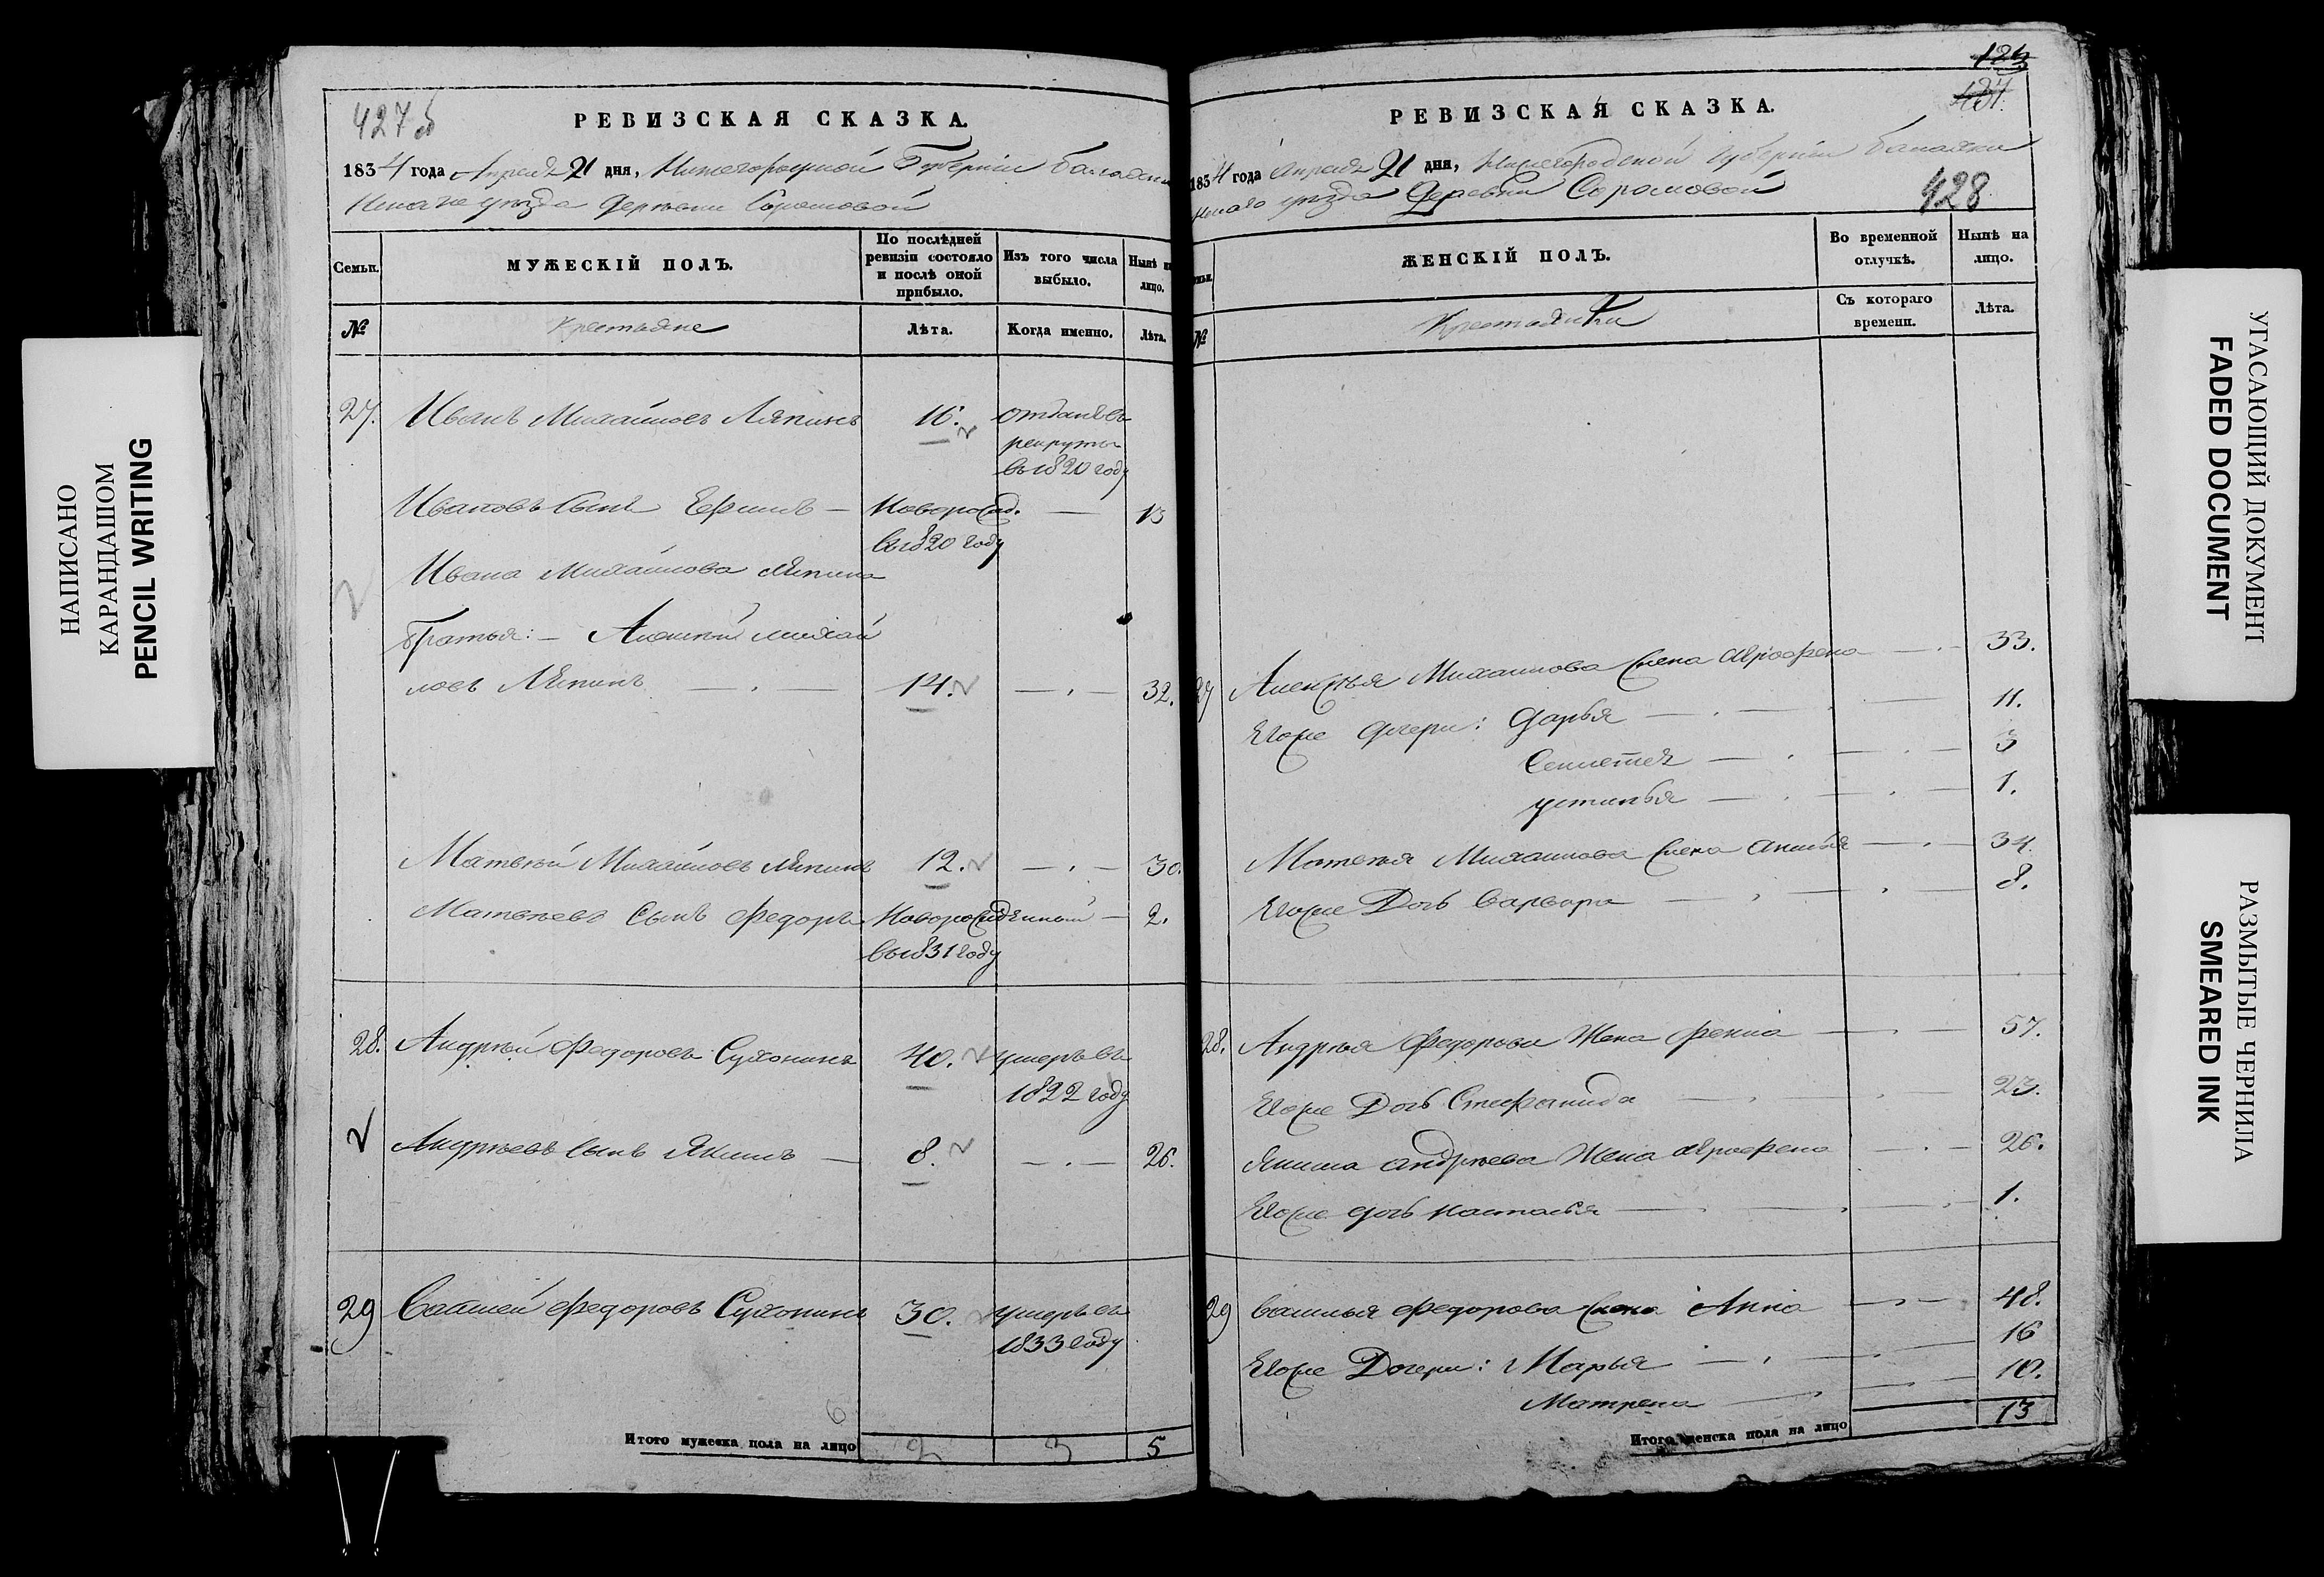 427 об
РЕВИЗСКАЯ СКАЗКА.
1834 года Апреля 21 дня, Нижегородской Губернiи Балахнин
скаго уезда Деревни Сормовой
Семьи.
МУЖЕСКІЙ ПОЛЪ.
По послѣдней ревизіи состояло и послѣ оной прибыло.
Изъ того числа выбыло.
Нынѣ на лицо.
№
Крестьяне
Лѣта.
Когда именно.
Лѣта.
27. Иванъ Михайловъ Ляпинъ 16. отданъ въ
рекруты
въ 1820 году
Ивановъ сынъ Ефимъ — Новорожд. — 13
въ 1820 году
Ивана Михайлова Ляпина
братья: — Алексѣй Михай
ловъ Ляпинъ — 14. — 32.
Матвѣй Михайловъ Ляпинъ 12. — 30.
Матвѣевъ сынъ Федоръ Новорожденный — 2.
въ 1831 году
28. Андрѣй Федоровъ Сухонинъ 40. умеръ въ
1822 году
Андрѣевъ сынъ Якимъ — 8. — 26.
29 Василей Федоровъ Сухонинъ 30. умеръ въ
1833 году
6
Итого мужеска пола на лицо 2 3 5
123
428
РЕВИЗСКАЯ СКАЗКА.
1834 года Апреля 21 дня, Нижегородской Губернiи Балахни
нскаго уезда Деревни Сормовой
ЖЕНСКІЙ ПОЛЪ.
Во временной отлучкѣ.
Нынѣ на лицо.
№
Крестьянки
Съ котораго времени.
Лѣта.
27 Алексѣя Михайлова жена Афрофена — 33.
Егоже дочери: Дарья — 11.
— 3
Устинья — 1.
Матвѣя Михайлова жена — 34.
Егоже Дочь Варвара — 8.
28. Андрѣя Федорова Жена — 57.
Егоже Дочь Стефанида — 23.
Якима Андрѣева Жена Афрофена — 26.
Егоже дочь Настасья — 1.
29 Василья Федорова жена Анна — 48.
Егоже Дочери: Марья — 16
Матрена — 10.
Итого женска пола на лицо 13
НАПИСАНО
КАРАНДАШОМ
PENCIL WRITING
УГАСАЮЩИЙ ДОКУМЕНТ
FADED DOCUMENT
РАЗМЫТЫЕ ЧЕРНИЛА
SMEARED INK